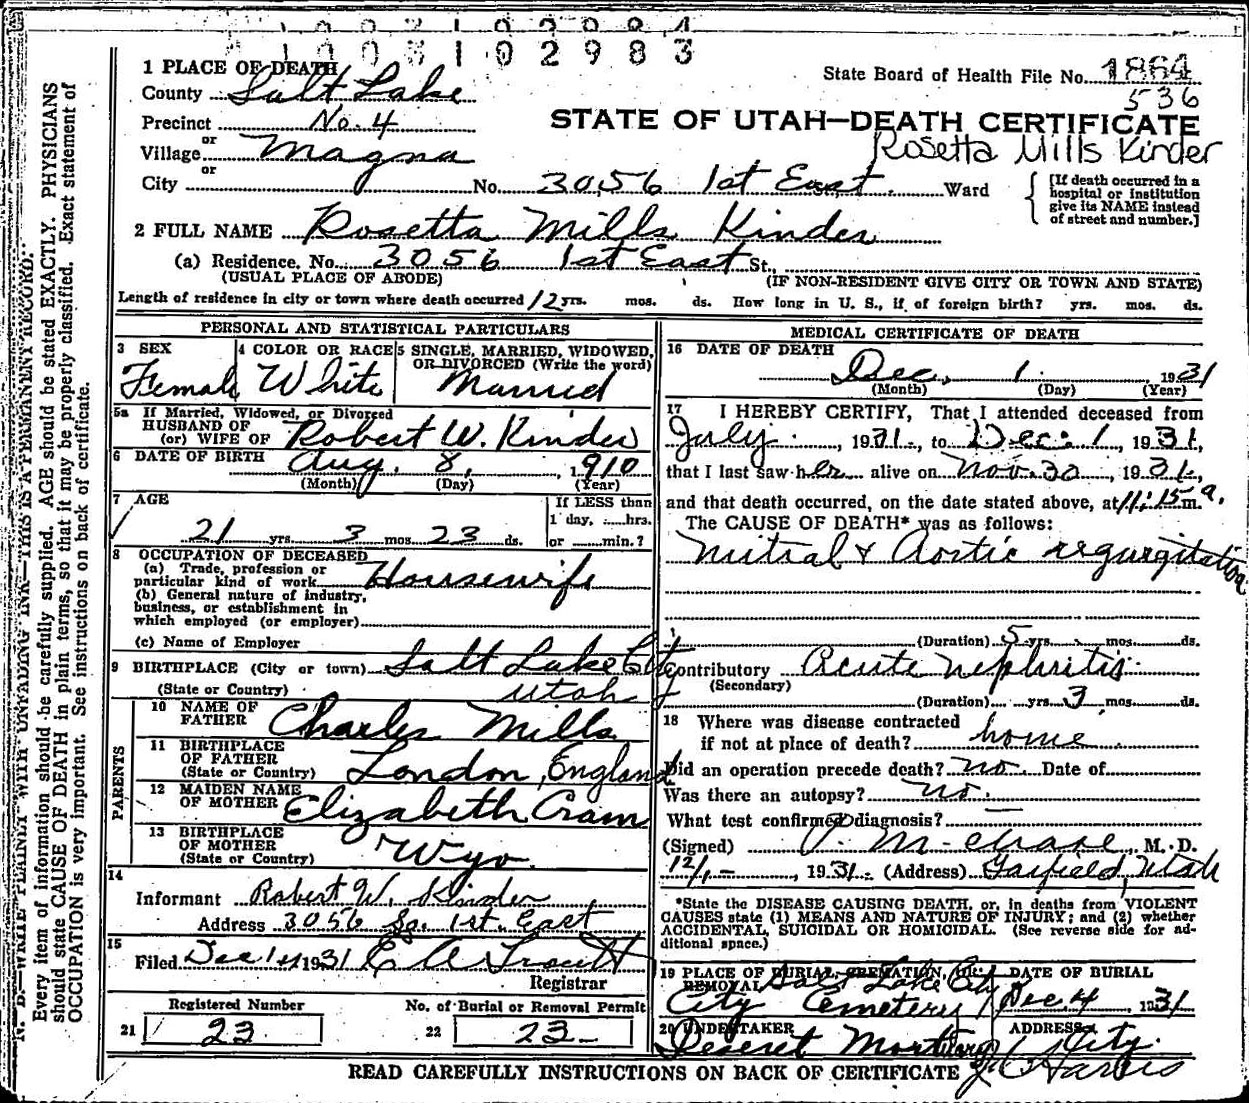 1003102984
1003102983
State Board of Health File No. 1864
536
STATE OF UTAH—DEATH CERTIFICATE
Rosetta Mills Kinder
1 PLACE OF DEATH
County Salt Lake
Precinct No. 4
or
Village Magna
or
City No. 3056 1st East Ward
[If death occurred in a
hospital or institution
give its NAME instead
of street and number.]
2 FULL NAME Rosetta Mills Kinder
(a) Residence, No. 3056 1st East St.,
(USUAL PLACE OF ABODE) (IF NON-RESIDENT GIVE CITY OR TOWN AND STATE)
Length of residence in city or town where death occurred 12 yrs. mos. ds. How long in U. S., if of foreign birth? yrs. mos. ds.
PERSONAL AND STATISTICAL PARTICULARS
3 SEX
Female
4 COLOR OR RACE
White
5 SINGLE, MARRIED, WIDOWED,
OR DIVORCED (Write the word)
Married
5a If Married, Widowed, or Divorced
HUSBAND OF
(or) WIFE OF Robert W. Kinder
6 DATE OF BIRTH Aug. 8, 1910
(Month) (Day) (Year)
7 AGE
21 yrs. 3 mos. 23 ds.
If LESS than
1 day, hrs.
or min.?
8 OCCUPATION OF DECEASED
(a) Trade, profession or
particular kind of work Housewife
(b) General nature of industry,
business, or establishment in
which employed (or employer)
(c) Name of Employer
9 BIRTHPLACE (City or town) Salt Lake City
(State or Country) Utah
PARENTS
10 NAME OF
FATHER Charles Mills
11 BIRTHPLACE
OF FATHER
(State or Country) London, England
12 MAIDEN NAME
OF MOTHER Elizabeth Cram
13 BIRTHPLACE
OF MOTHER
(State or Country) Wyo.
14
Informant Robert W. Kinder
Address 3056 So. 1st. East
15
Filed Dec 1st 1931 E A Troutt
Registrar
Registered Number
21 23
No. of Burial or Removal Permit
22 23
MEDICAL CERTIFICATE OF DEATH
16 DATE OF DEATH
Dec. 1 1931
(Month) (Day) (Year)
17 I HEREBY CERTIFY, That I attended deceased from
July, 1931, to Dec. 1, 1931,
that I last saw her alive on Nov. 30, 1931,
and that death occurred, on the date stated above, at 11:15 a. m.
The CAUSE OF DEATH* was as follows:
Mitral & Aortic regurgitation
(Duration) 5 yrs. mos. ds.
Contributory Acute Nephritis
(Secondary)
(Duration) yrs. 3 mos. ds.
18 Where was disease contracted
if not at place of death? home
Did an operation precede death? no. Date of
Was there an autopsy? no.
What test confirmed diagnosis?
(Signed) M. D.
12/1, 1931. (Address) Garfield, Utah
*State the DISEASE CAUSING DEATH, or, in deaths from VIOLENT
CAUSES state (1) MEANS AND NATURE OF INJURY; and (2) whether
ACCIDENTAL, SUICIDAL OR HOMICIDAL. (See reverse side for ad-
ditional space.)
19 PLACE OF BURIAL, CREMATION, OR
REMOVAL Salt Lake City
City Cemetery
DATE OF BURIAL
Dec 4, 1931
20 UNDERTAKER
Deseret Mortuary
ADDRESS
City.
J C Harris
READ CAREFULLY INSTRUCTIONS ON BACK OF CERTIFICATE
N. B.—WRITE PLAINLY WITH UNFADING INK—THIS IS A PERMANENT RECORD.
Every item of information should be carefully supplied. AGE should be stated EXACTLY. PHYSICIANS
should state CAUSE OF DEATH in plain terms, so that it may be properly classified. Exact statement of
OCCUPATION is very important. See instructions on back of certificate.